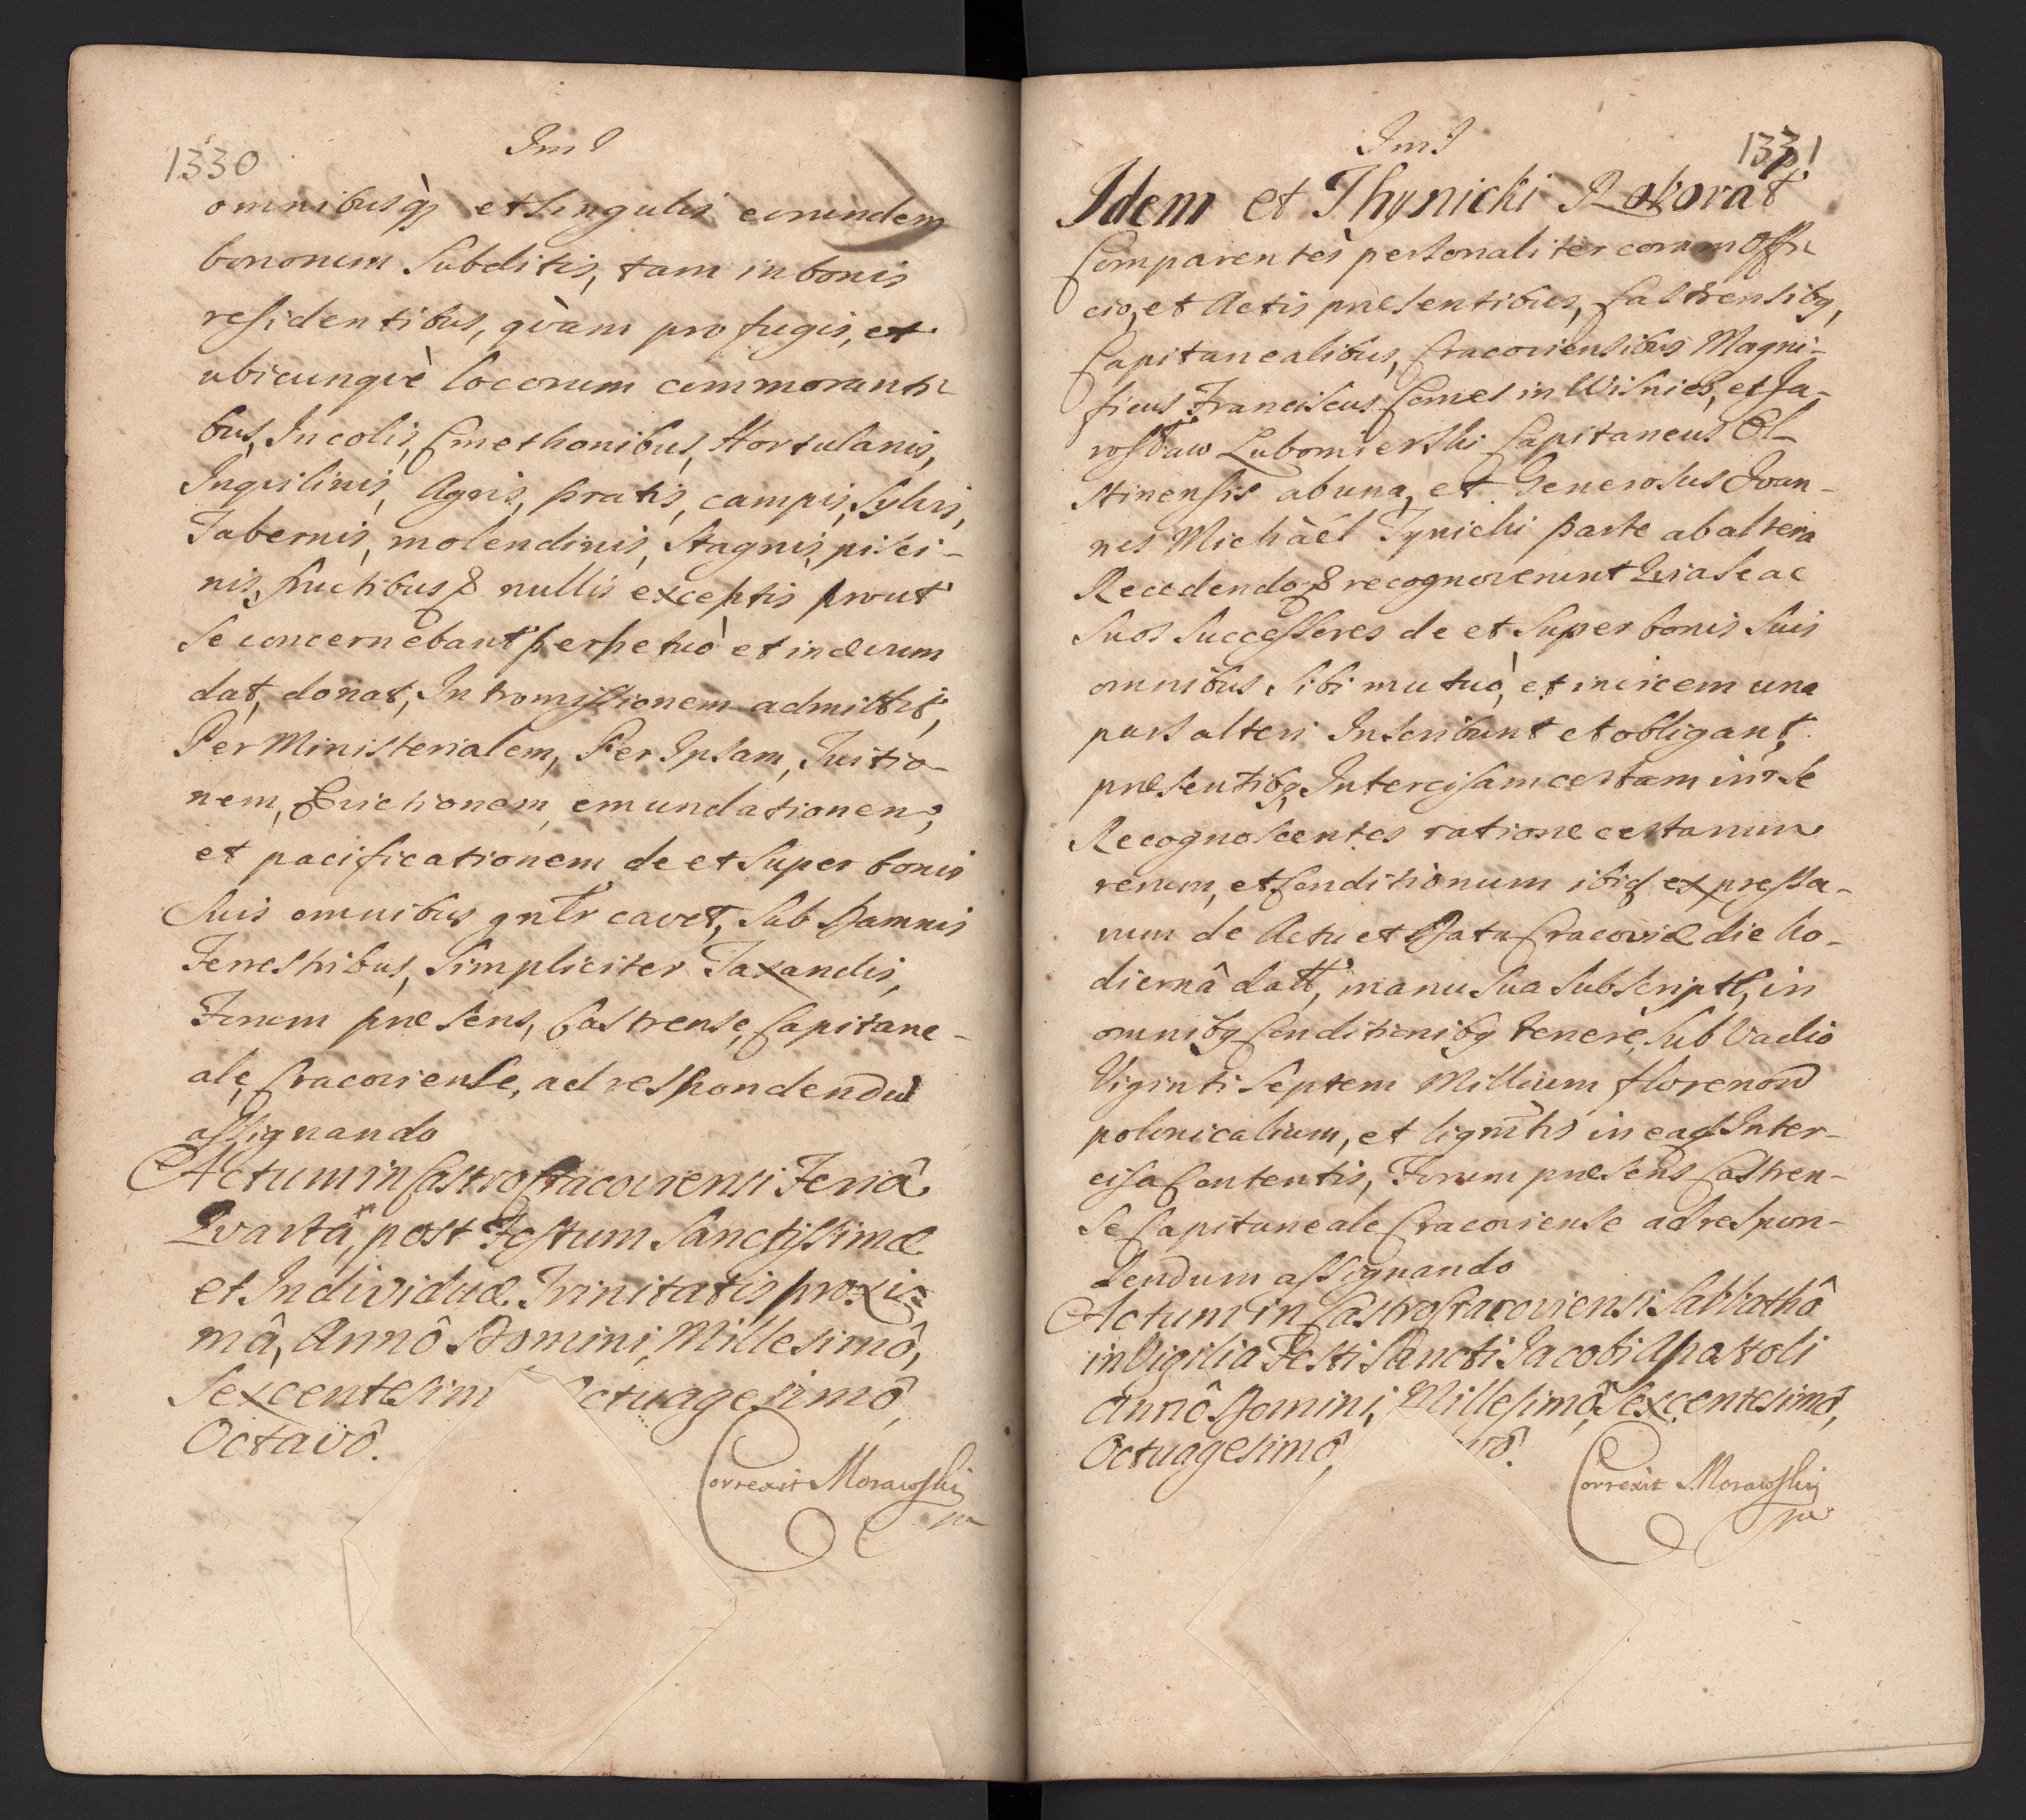 1330
omnibusq; et singulis eorundem
bonorum Subditis, tam in bonis
residentibus, qvàm profugis, et
ubicunqvè locorum commoranti-
bus, Incolis, Cmethonibus, Hortulanis,
Inqvilinis, Agris, pratis, campis, Sylvis,
Tabernis, molendinis, Stagnis, pisci-
nis, fructibus & nullis exceptis prout
se concernebant perpetuò et in ævum
dat, donat, Intromissionem admittit,
Per Ministerialem, Per Ipsam, Tuitio-
nem, Evictionem, emundationem,
et pacificationem de et super bonis
Suis omnibus gnlr cavet, Sub Damnis
Terrestribus, simpliciter Taxandis,
Forum præsens, Castrense, Capitane-
ale, Cracoviense, ad respondendū
assignando
Actum in Castro Cracoviensi Feriâ
Qvartâ, post Festum Sanctissimæ
et Individuæ Trinitatis proxi-
mâ, Annô Domini, Millesimô,
Sexcentesim ctuagesimô,
Octavô.
Correxit Morawski
1331
Idem et Thynicki Roborat
Comparentes personaliter coram Offi-
cio, et Actis præsentibus, Castrensibq,
Capitanealibus, Cracoviensibus Magni-
ficus Franciscus Comes in Wisnicz, et Ja-
rosław Lubomierski Capitaneus Ol-
stinensis ab una, et Generosus Joan-
nes Michàël Tynicki parte ab altera
Recedendo & recognoverunt Qvia se ac
Suos Successores de et super bonis Suis
omnibus sibi mutuò, et invicem una
pars alteri Inscribunt et obligant,
præsentibq, Intercisam certam intr se
Recognoscentes ratione certarum
rerum, et Conditionum ibid expressa-
rum de Actu et Data Cracoviæ die ho-
diernâ datt, manu Sua Subscript, in
omnibq Conditionibq tenere, Sub Vadio
Viginti Septem Millium florenorū
polonicalium, et lignītis in ead Inter-
cisa Contentis, Forum præsens Castren-
se Capitaneale Cracoviense ad respon-
dendum assignando
Actum in Castro Cracoviensi Sabbathô
in Vigilia Festi Sancti Jacobi Apostoli
Annô Domini, Millesimô, Sexcentesimô,
Octuagesimô, vô.
Correxit Morawski